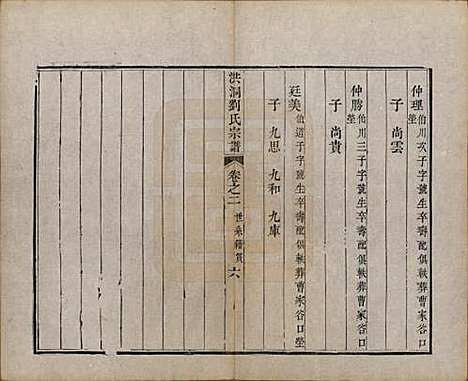 仲理伯川次子字號生卒壽配俱軼葬曹家谷口
塋
子 尚雲
仲勝伯川三子字號生卒壽配俱軼葬曹家谷口
塋
子 尚貴
廷美伯道子字號生卒壽配俱軼葬曹家谷口塋
子 九思 九和 九庫
洪洞劉氏宗譜 卷之二 世系籍貫 六